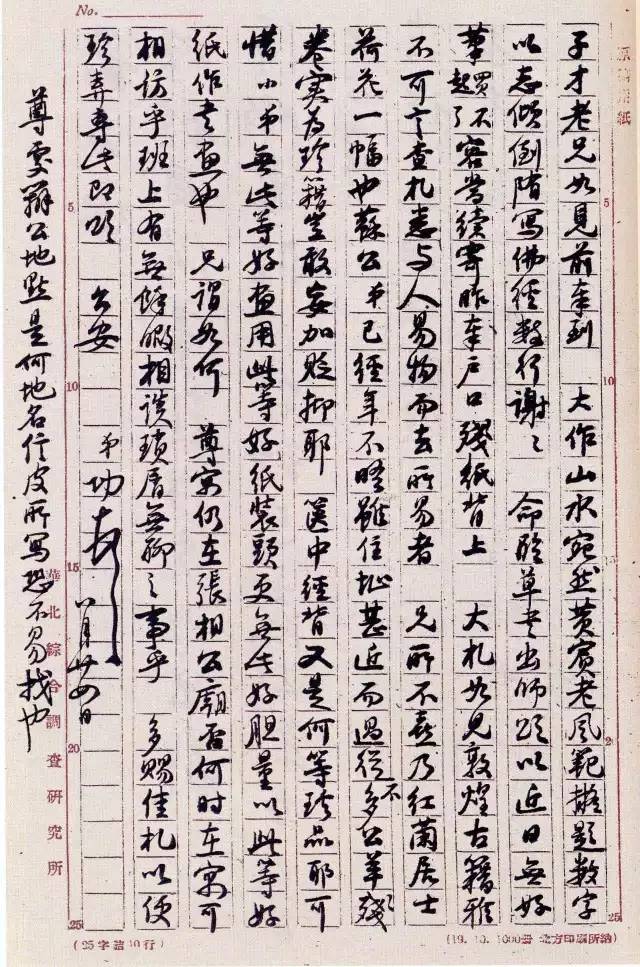 No.
原稿用紙
子才老兄如見前奉到 大作山水宛然黄賓老風範擬題數字
以志傾倒隋寫佛經數行謝〻 命臨草書出師頌以近日無好
筆買不了起容當續寄昨奉戶口殘紙背上 大札如見敦煌古籍雅
不可言查札惠与人易物而去所易者 兄所不喜乃紅蘭居士
荷花一幅也蘇公弟已經年不晤雖住址甚近而過從不多公羊殘
卷實為珍籍豈敢妄加貶抑耶 篋中經背又是何等珍品耶可
惜小弟無此等好畫用此等好紙裝頭更無此好胆量以此等好
紙作書畫也 兄謂如何 尊寓仍在張相公廟否何時在寓可
相訪乎班上有無餘暇相談瑣屑無聊〻事乎 多賜佳札以便
珍弆專此即頌 公安
弟功
八月廿四日
尊處辦公地點是何地名信皮所寫恐不易找也
華北綜合調查研究所
5
10
15
20
25
5
10
20
25
(25字第10行)
(19. 10. 1000冊 北方印刷所納)